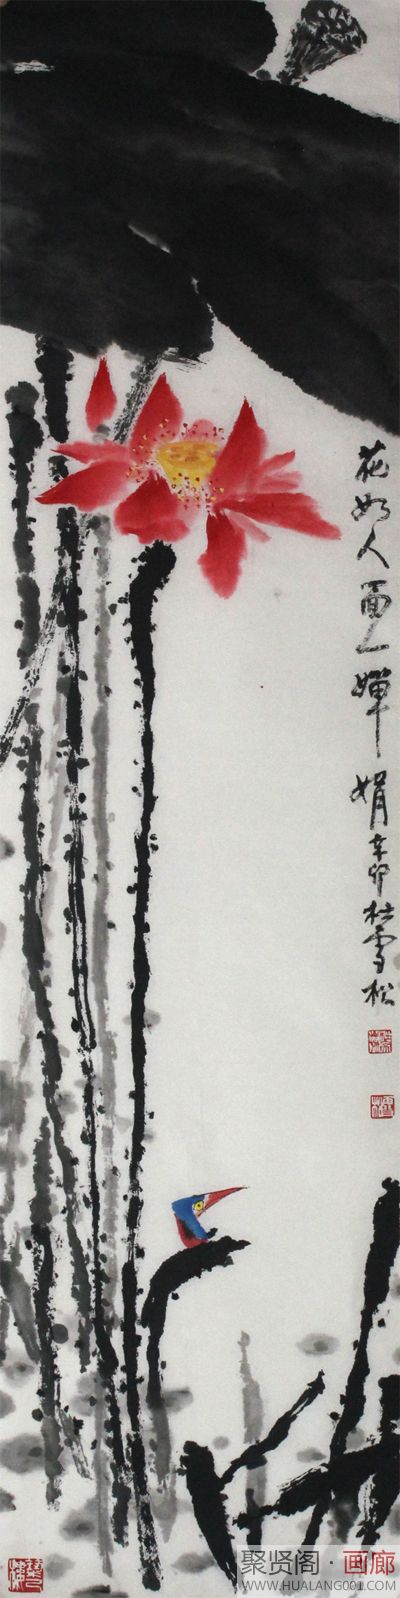 花如人面人婵娟
辛卯杜雪松
聚贤阁·画廊
WWW.HUALANG001.COM